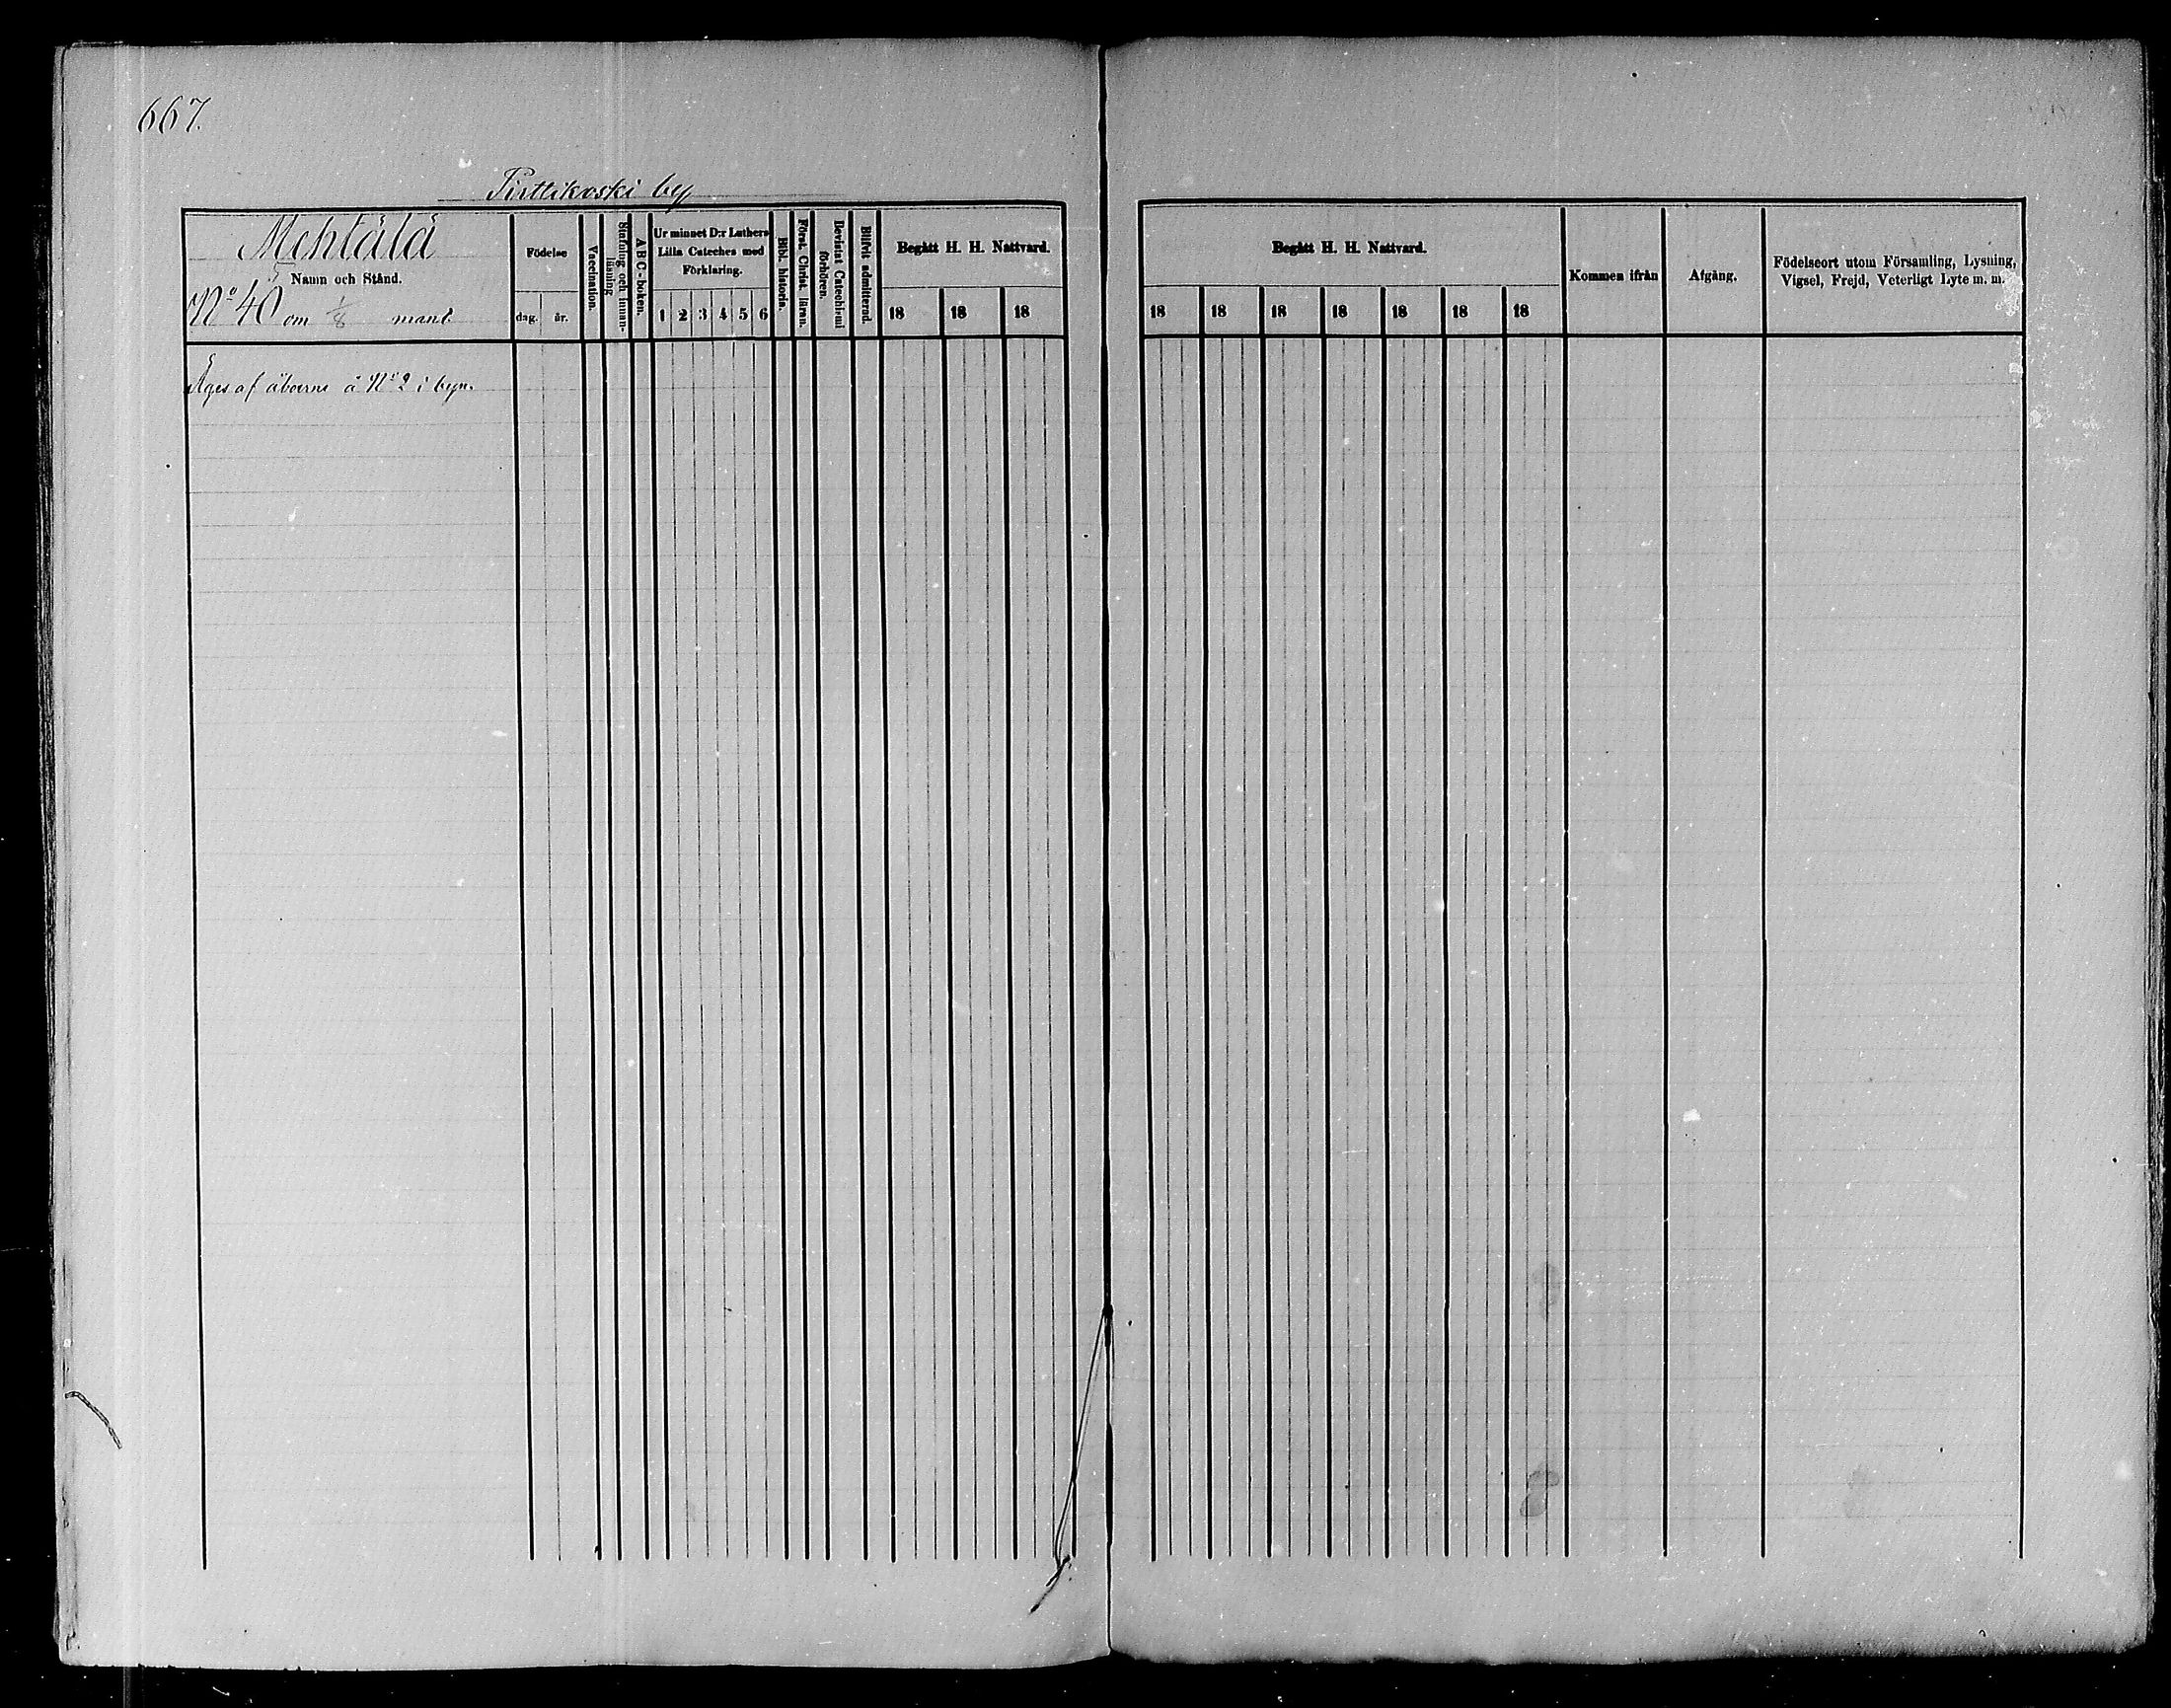 667.
Pirttikoski by
Mehtälä
Namn och Stånd.
No 40 om 1/8 mant.
Födelse
dag. år.
Vaccination.
Stafning och innan-
läsning
ABC-boken.
Ur minnet D:r Luthers
Lilla Cateches med
Förklaring.
1 2 3 4 5 6
Bibl. historia.
Först. Christ. läran.
Bevistat Catechismi
förhören.
Blifvit admitterad.
Begått H. H. Nattvard.
18 18 18
Äges af åboerne å No 2 i byn.
Begått H. H. Nattvard.
18 18 18 18 18 18 18
Kommen ifrån
Afgång.
Födelseort utom Församling, Lysning,
Vigsel, Frejd, Veterligt Lyte m. m.